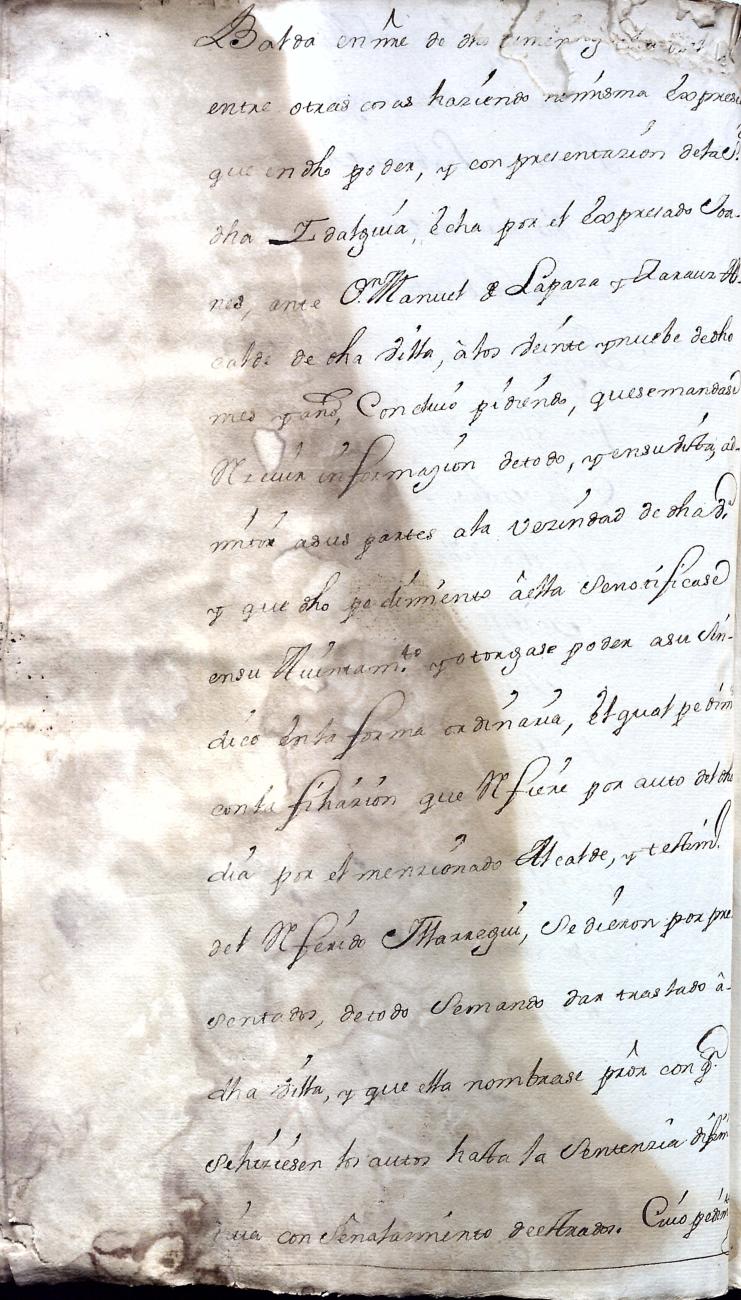 Balda en nre de dho
entre otras cosas haziendo mimisma Expresi
que en dho poder, y con presentazion dela
dha Idalguia, echa por el Expresado Joa-
nes, ante Dn Manuel de Lapaza y Zarauz Al-
calde de dha Villa, à los veinte y nuebe de dho
mes y año, Concluió pidiendo, que se mandasé
Rzeuir informazion de todo, y en su vista, ad-
mitir a sus partes a la Vezindad de dha Va
y que dho pedimiento à ella Se notificase
en su Aiuntamto y otorgase poder a su Sin-
dico en la forma ordinaria, El qual pedim
con la filiazion que Rfiere por auto del dho
dia por el menzionado Alcalde, y testim
del Rferido Ittarregui, Se dieron por pre
sentados, de todo Se mando dar traslado â-
dha Villa, y que ella nombrase prôr con qn
Se hiziesen los autos hasta la Sentenzia difini
tiua con Señalamiento de estrados. Cuio pedim